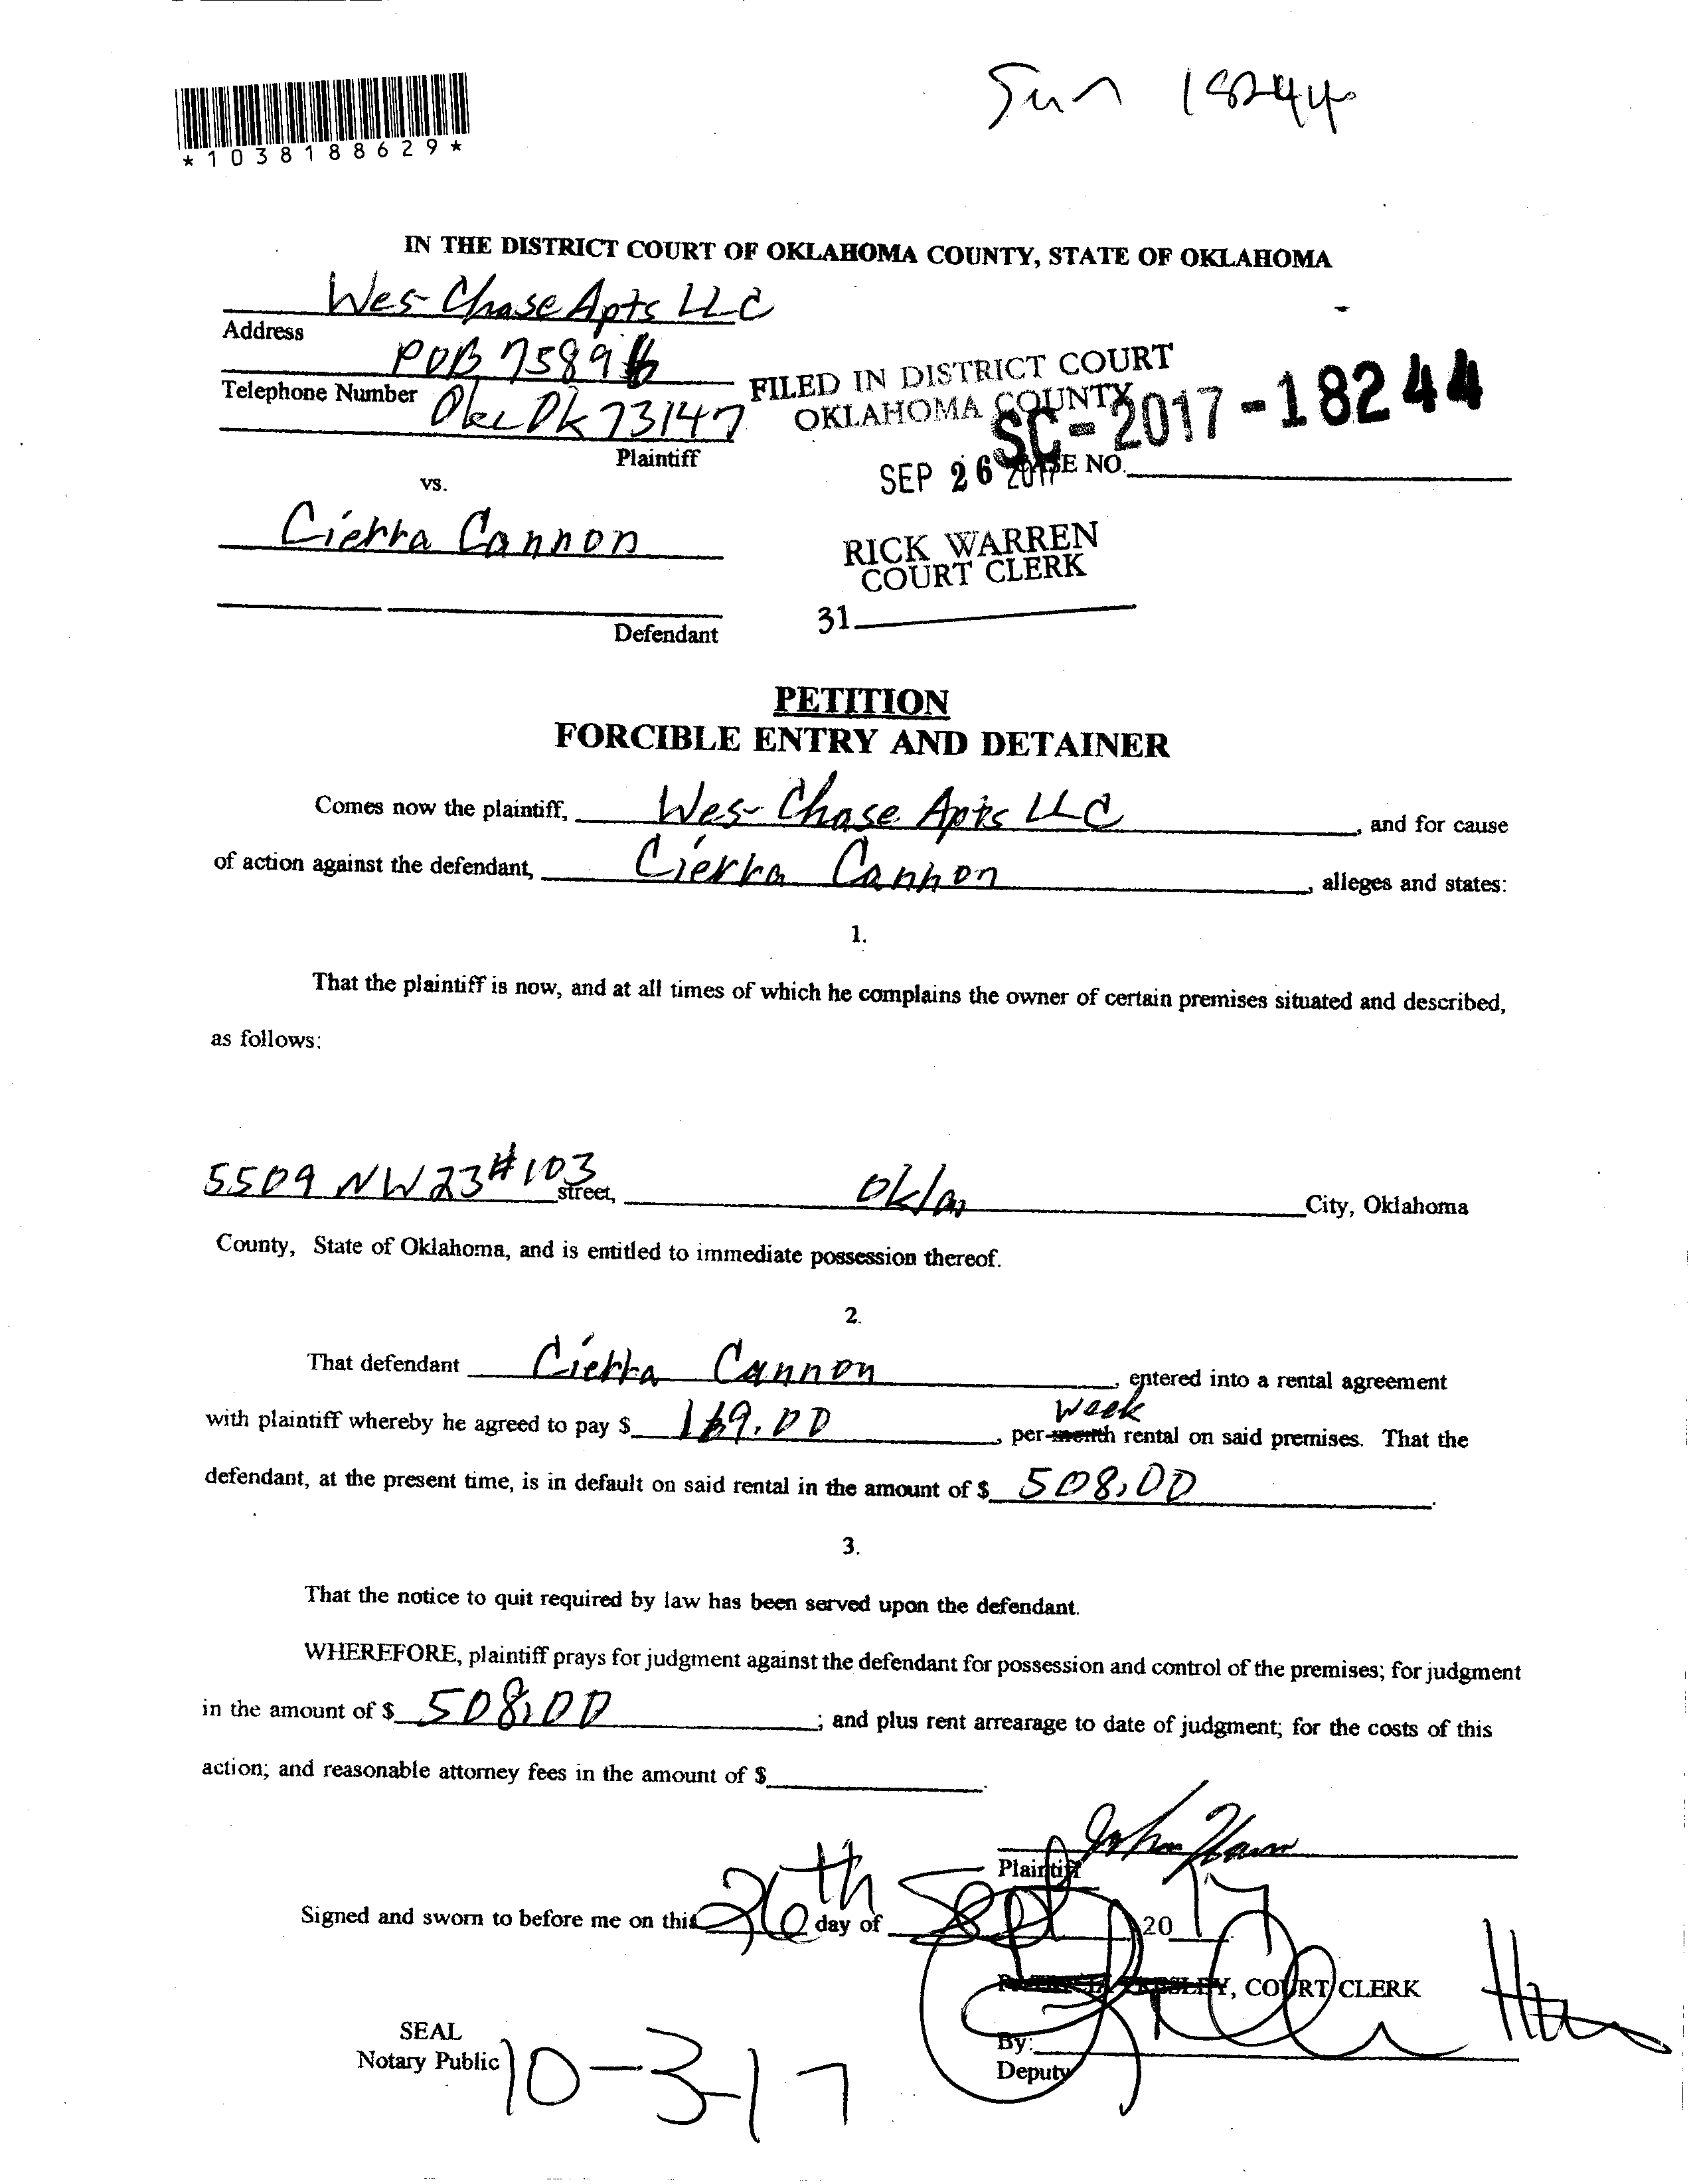 Sun 18244
*1038188629*
IN THE DISTRICT COURT OF OKLAHOMA COUNTY, STATE OF OKLAHOMA
Wes-Chase Apts LLC
Address
POB 75896
Telephone Number
Okc Ok 73147
Plaintiff
FILED IN DISTRICT COURT
OKLAHOMA COUNTY
SC-2017-18244
SEP 26 2017
CASE NO.
vs.
Cierra Cannon
RICK WARREN
COURT CLERK
31
Defendant
PETITION
FORCIBLE ENTRY AND DETAINER
Comes now the plaintiff, Wes-Chase Apts LLC, and for cause
of action against the defendant, Cierra Cannon, alleges and states:
1.
That the plaintiff is now, and at all times of which he complains the owner of certain premises situated and described,
as follows:
5509 NW 23 #103 street, Okla City, Oklahoma
County, State of Oklahoma, and is entitled to immediate possession thereof.
2.
That defendant Cierra Cannon, entered into a rental agreement
with plaintiff whereby he agreed to pay $ 169.00, per month week rental on said premises. That the
defendant, at the present time, is in default on said rental in the amount of $ 508.00.
3.
That the notice to quit required by law has been served upon the defendant.
WHEREFORE, plaintiff prays for judgment against the defendant for possession and control of the premises; for judgment
in the amount of $ 508.00; and plus rent arrearage to date of judgment; for the costs of this
action; and reasonable attorney fees in the amount of $
John
Plaintiff
Signed and sworn to before me on this 26th day of Sept 2017
COURT CLERK
SEAL
Notary Public
By:
Deputy
10-3-17